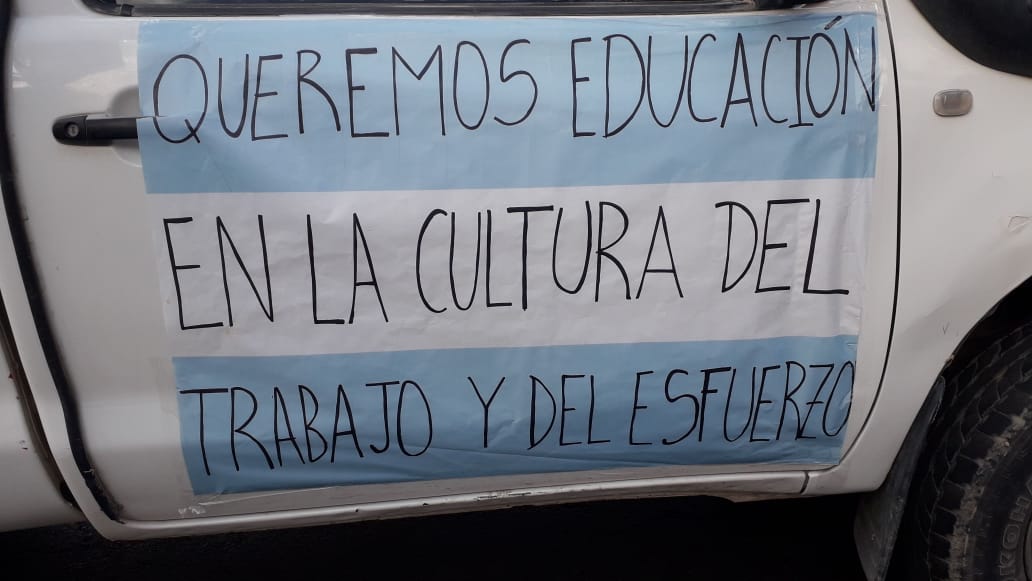 QUEREMOS EDUCACIÓN
EN LA CULTURA DEL
TRABAJO Y DEL ESFUERZO